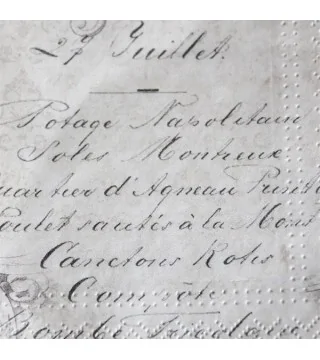 27 Juillet.
Potage Napolitain
Soles Montreux
uartier d'Agneau
oulet sautés à la Mont
Canetons Rotis
Compôte
Bombe